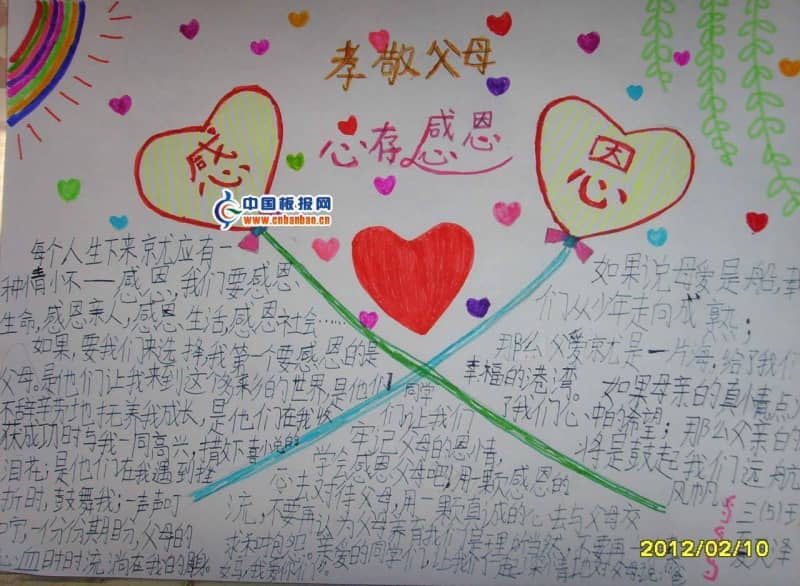 孝敬父母
心存感恩
感
恩
中国板报网
www.cnbanbao.cn
每个人生下来京尤应有一
种情怀——感恩,我们要感恩
生命,感恩亲人,感恩生活,感恩社会……
如果,要我们来选择我第一个要感恩的是
父母。是他们让我来到这个多彩的世界,是他们
不辞辛劳地抚养我成长,是他们在我
获成功时与我一同高兴,
泪花;是他们在我遇到挫
折时,鼓舞我;一声声叮
一份份期盼,父母的
心血时时流淌在我的
同学
们,让我们
牢记父母的恩情,
学会感恩父母吧!用一颗感恩的
心去对待父母,用一颗真诚的心去与父母交
流,不要再认为父母养育我们是理所当然
亲爱的同学们,让我们
如果说母爱是船,载
们从少年走向成熟;
那么父爱京尤是一片海,给了我们
幸福的港湾。
如果母亲的真情点
了我们心中的希望;那么父亲的
将是鼓起我们远航
风帆
三(5)王
2012/02/10